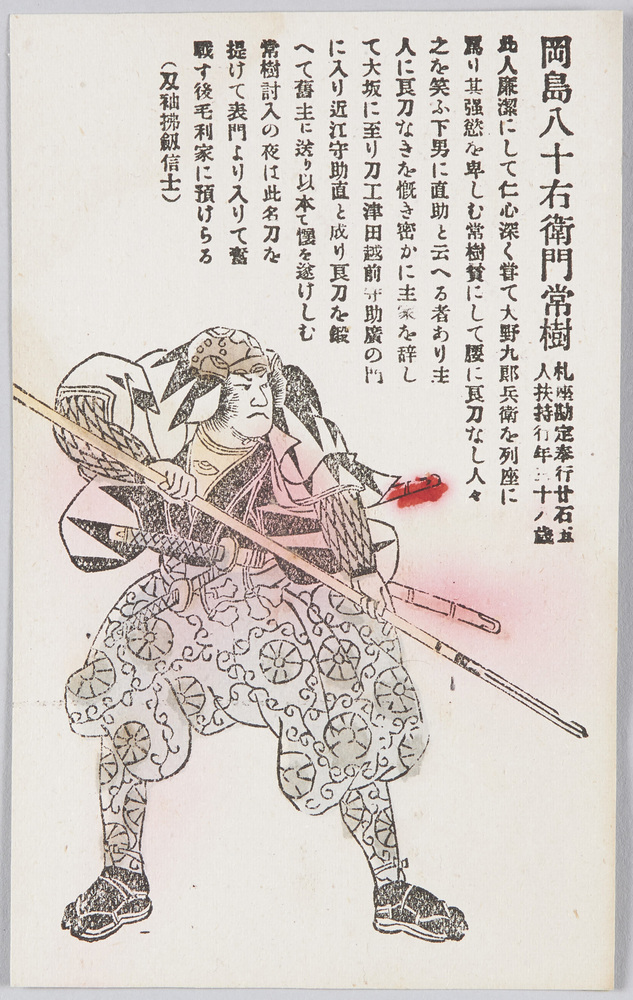 岡島八十右衛門常樹
札座勘定奉行廿石五
人扶持行年三十八歳
此人廉潔にして仁心深く甞て大野九郎兵衛を列座に
罵り其强慾を卑しむ常樹貧にして腰に良刀なし人々
之を笑ふ下男に直助と云へる者あり主
人に良刀なきを慨き密かに主家を辞し
て大坂に至り刀工津田越前守助廣の門
に入り近江守助直と成り良刀を鍛
へて舊主に送り以本て懐を遂けしむ
常樹討入の夜は此名刀を
提けて表門より入りて奮
戰す後毛利家に預けらる
（双袖拂劔信士）